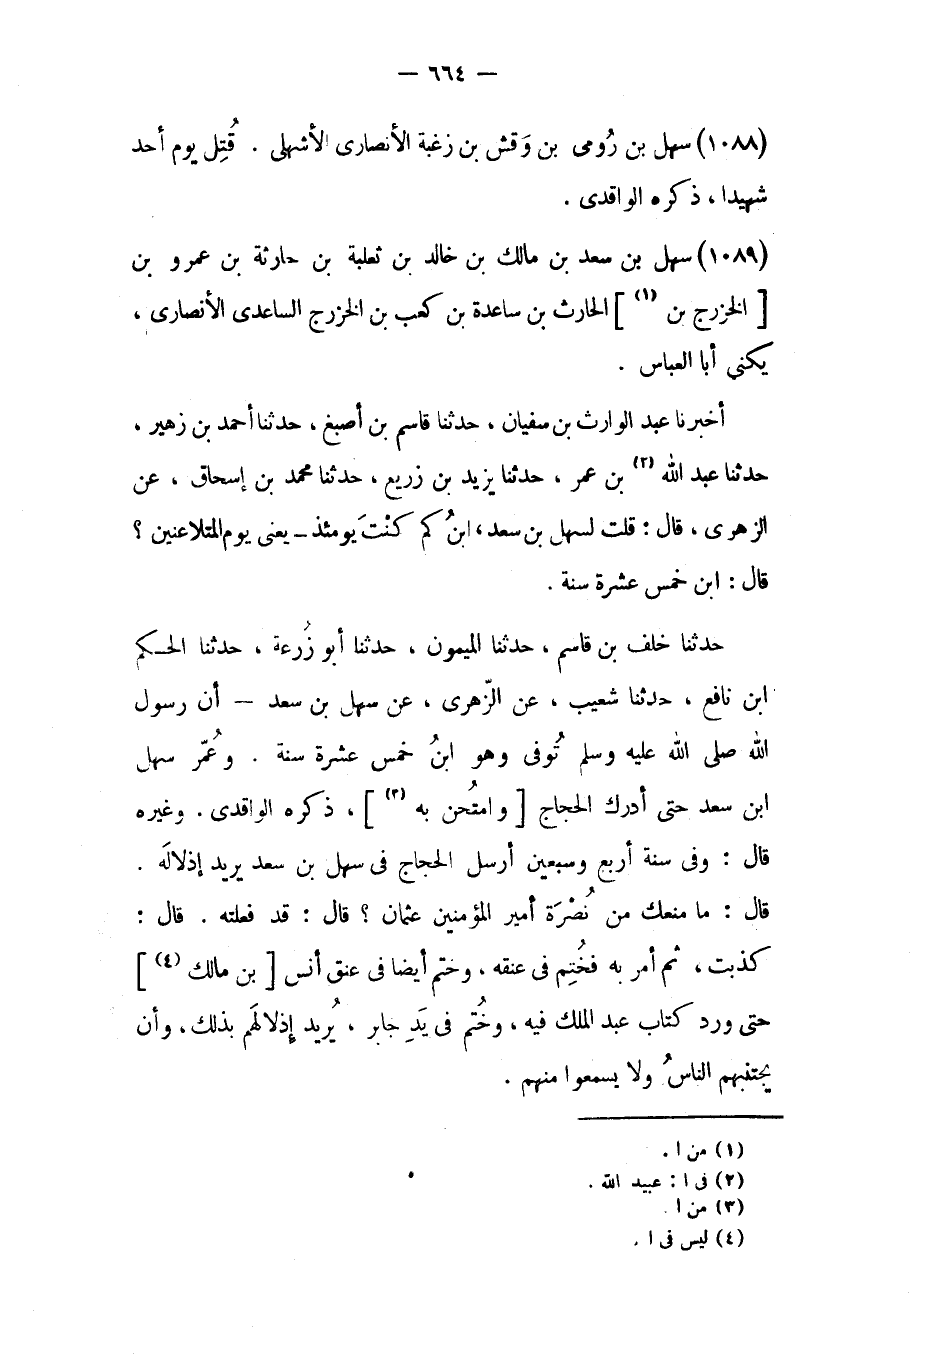 — ٦٦٤ —
(١٠٨٨) سهل بن رُومى بن وَقش بن زغبة الأنصارى الأشهلى . قُتِل يوم أحد
شهيدا ، ذكره الواقدى .
(١٠٨٩) سهل بن سعد بن مالك بن خالد بن ثعلبة بن حارثة بن عمرو بن
[ الخزرج بن (١) ] الحارث بن ساعدة بن كعب بن الخزرج الساعدى الأنصارى ،
يكنى أبا العباس .
أخبرنا عبد الوارث بن سفيان ، حدثنا قاسم بن أصبغ ، حدثنا أحمد بن زهير ،
حدثنا عبد الله (٢) بن عمر ، حدثنا يزيد بن زريع ، حدثنا محمد بن إسحاق ، عن
الزهرى ، قال : قلت لسهل بن سعد ، ابنُ كم كنْتَ يومئذ ــ يعنى يوم المتلاعنين ؟
قال : ابن خمس عشرة سنة .
حدثنا خلف بن قاسم ، حدثنا الميمون ، حدثنا أبو زُرعة ، حدثنا الحـكم
ابن نافع ، حدثنا شعيب ، عن الزّهرى ، عن سهل بن سعد — أن رسول
الله صلى الله عليه وسلم تُوفى وهو ابنُ خمس عشرة سنة . وعُمّر سهل
ابن سعد حتى أدرك الحجاج [ وامتُحن به (٣) ] ، ذكره الواقدى . وغيره
قال : وفى سنة أربع وسبعين أرسل الحجاج فى سهل بن سعد يريد إذلالَه .
قال : ما منعك من نُصْرَة أمير المؤمنين عثمان ؟ قال : قد فعلته . قال :
كذبت ، ثم أمر به فخُتِم فى عنقه ، وختم أيضا فى عنق أنس [ بن مالك (٤) ]
حتى ورد كتاب عبد الملك فيه ، وخُتم فى يَدِ جابر ، يُريد إِذلالَهم بذلك ، وأن
يجتنبهم الناسُ ولا يسمعوا منهم .
(١) من ا .
(٢) فى ا : عبيد الله .
(٣) من ا .
(٤) ليس فى ا .